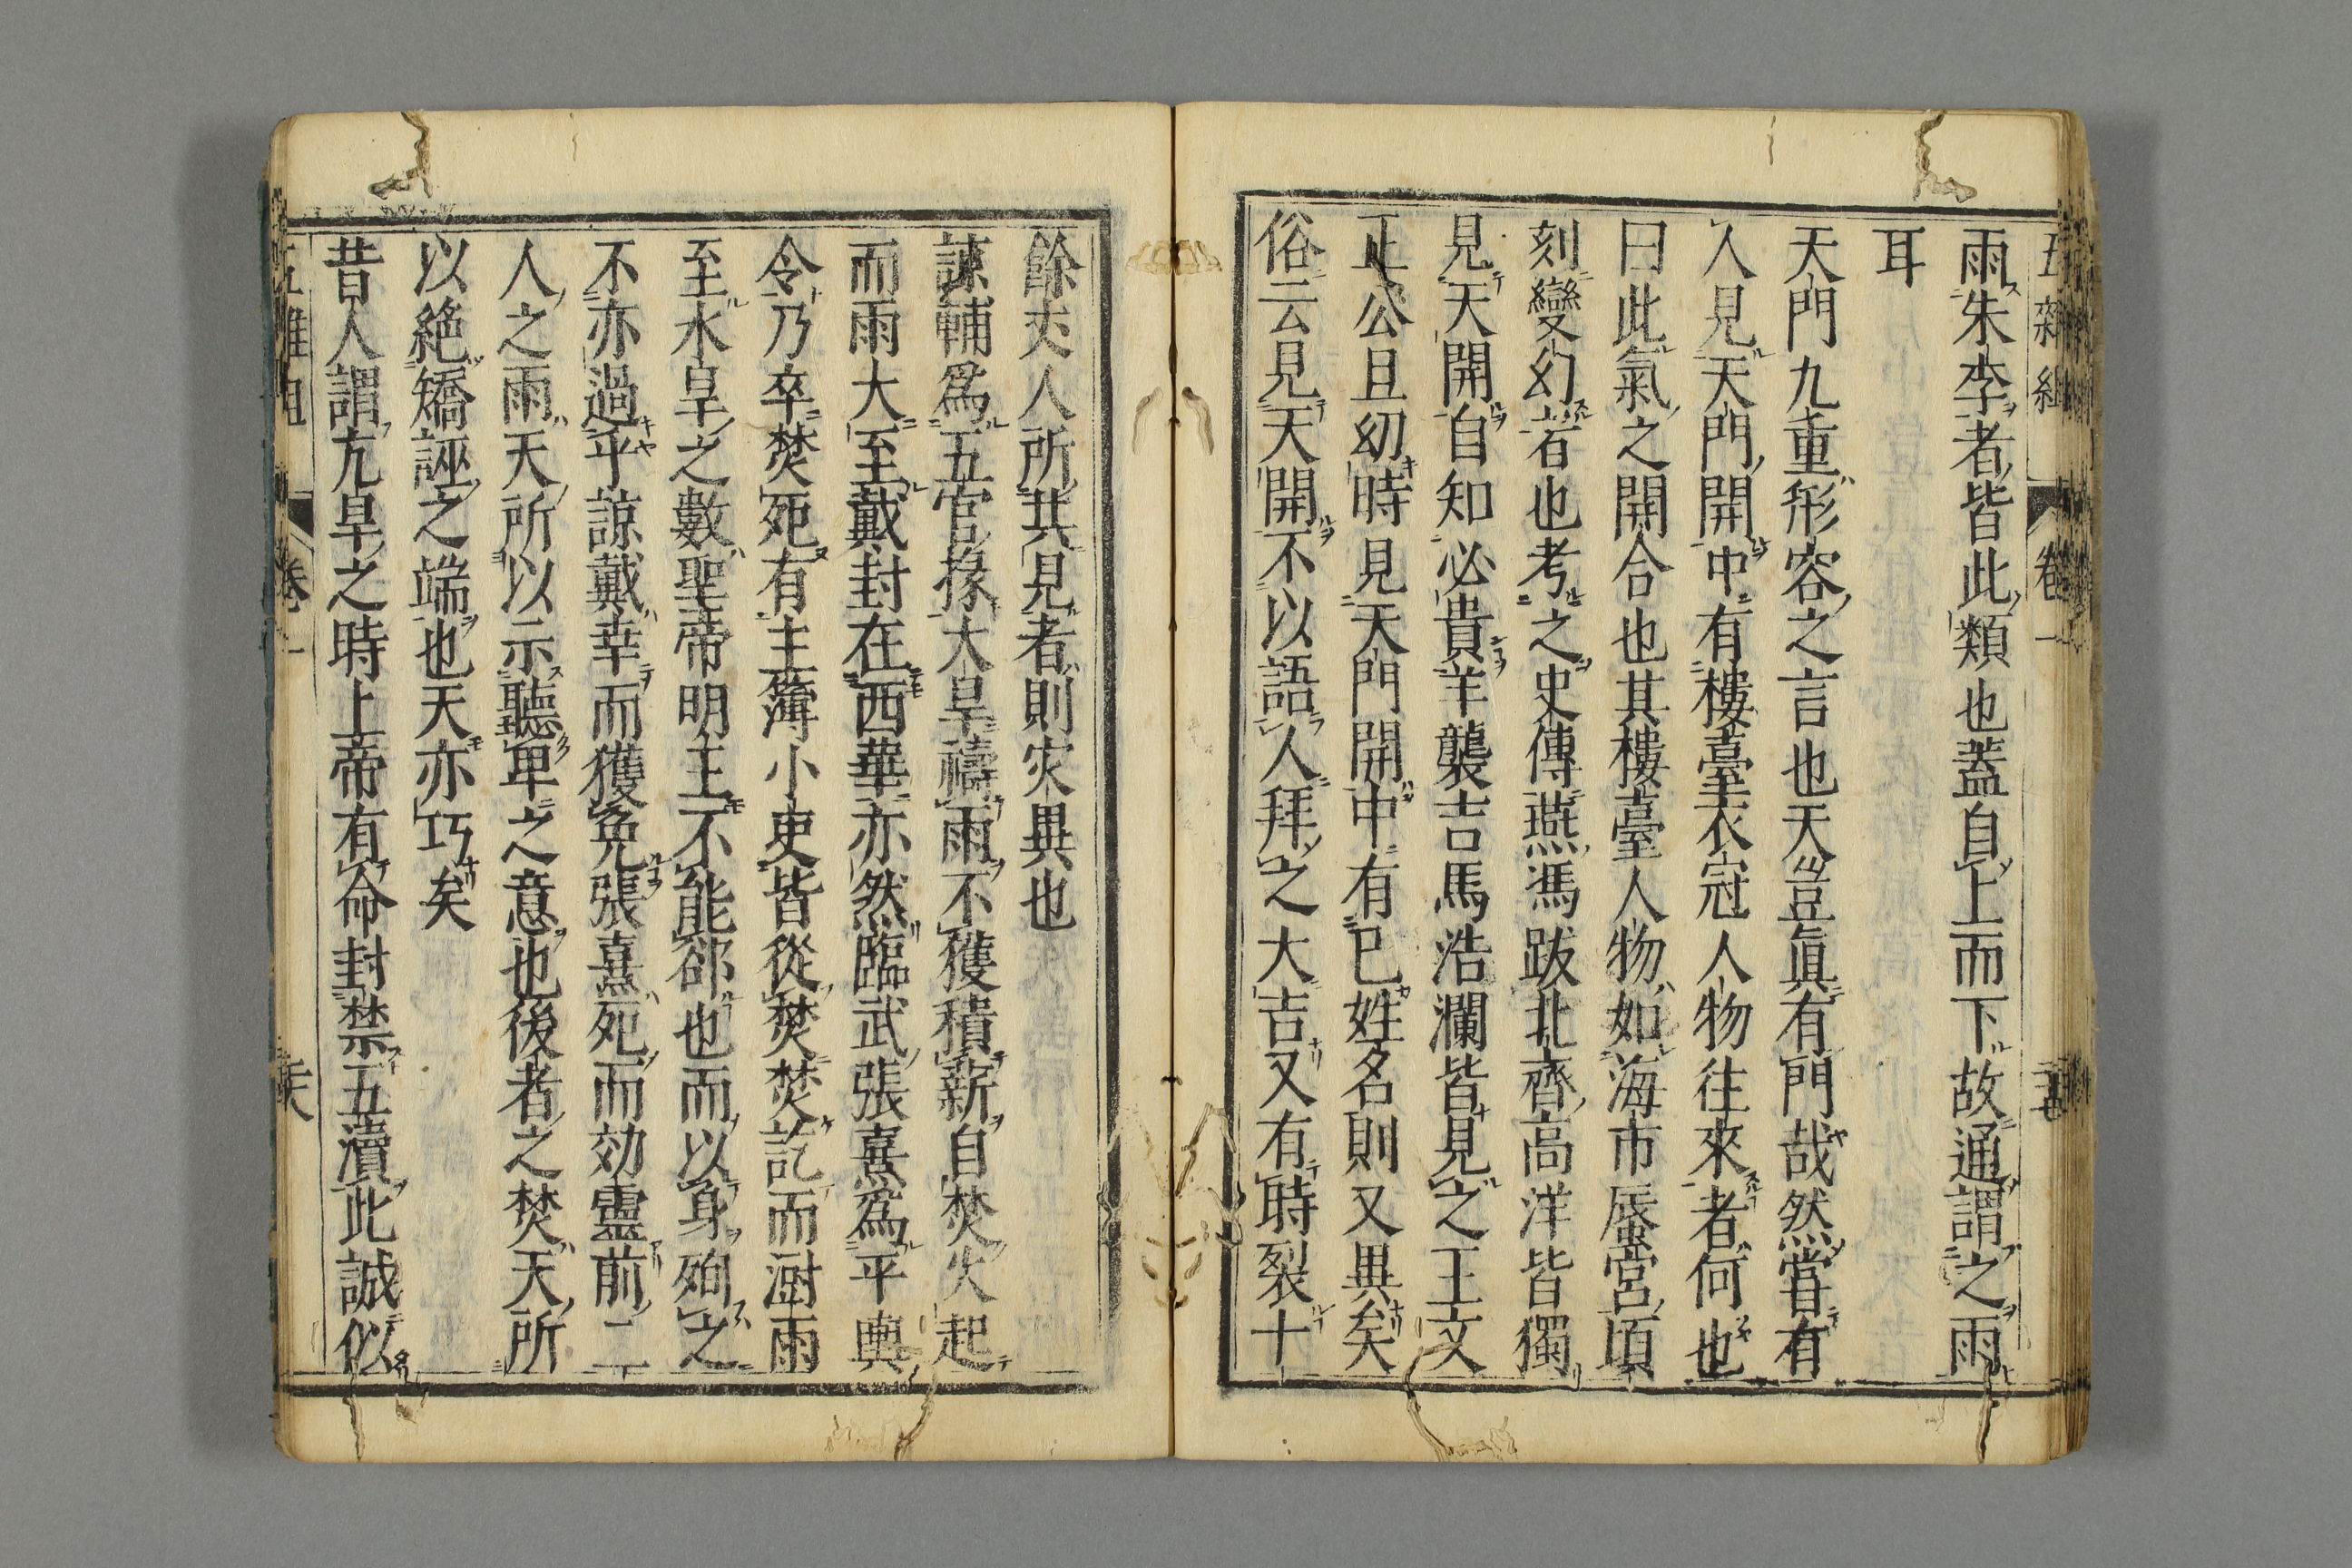 五雜組 卷一
雨朱李者皆此類也蓋自上而下故通謂之雨
耳
天門九重形容之言也天豈眞有門哉然嘗有
人見天門開中有樓臺衣冠人物往來者何也
曰此氣之開合也其樓臺人物如海市蜃宮頃
刻變幻者也考之史傳燕馮跋北齊高洋皆獨
見天開自知必貴羊襲吉馬浩瀾皆見之王文
正公且幼時見天門開中有已姓名則又異矣
俗云見天開不以語人拜之大吉又有時裂十
餘丈人所共見者則灾異也
諒輔爲五官掾大旱禱雨不獲積薪自焚火起
而雨大至戴封在西華亦然臨武張熹爲平輿
令乃卒焚死有主簿小吏皆從焚焚訖而澍雨
至水旱之數聖帝明王不能郤也而以身殉之
不亦過乎諒戴幸而獲免張熹死而効靈前二
人之雨天所以示聽卑之意也後者之焚天所
以絕矯誣之端也天亦巧矣
昔人謂亢旱之時上帝有命封禁五瀆此誠似
五雜組 卷一